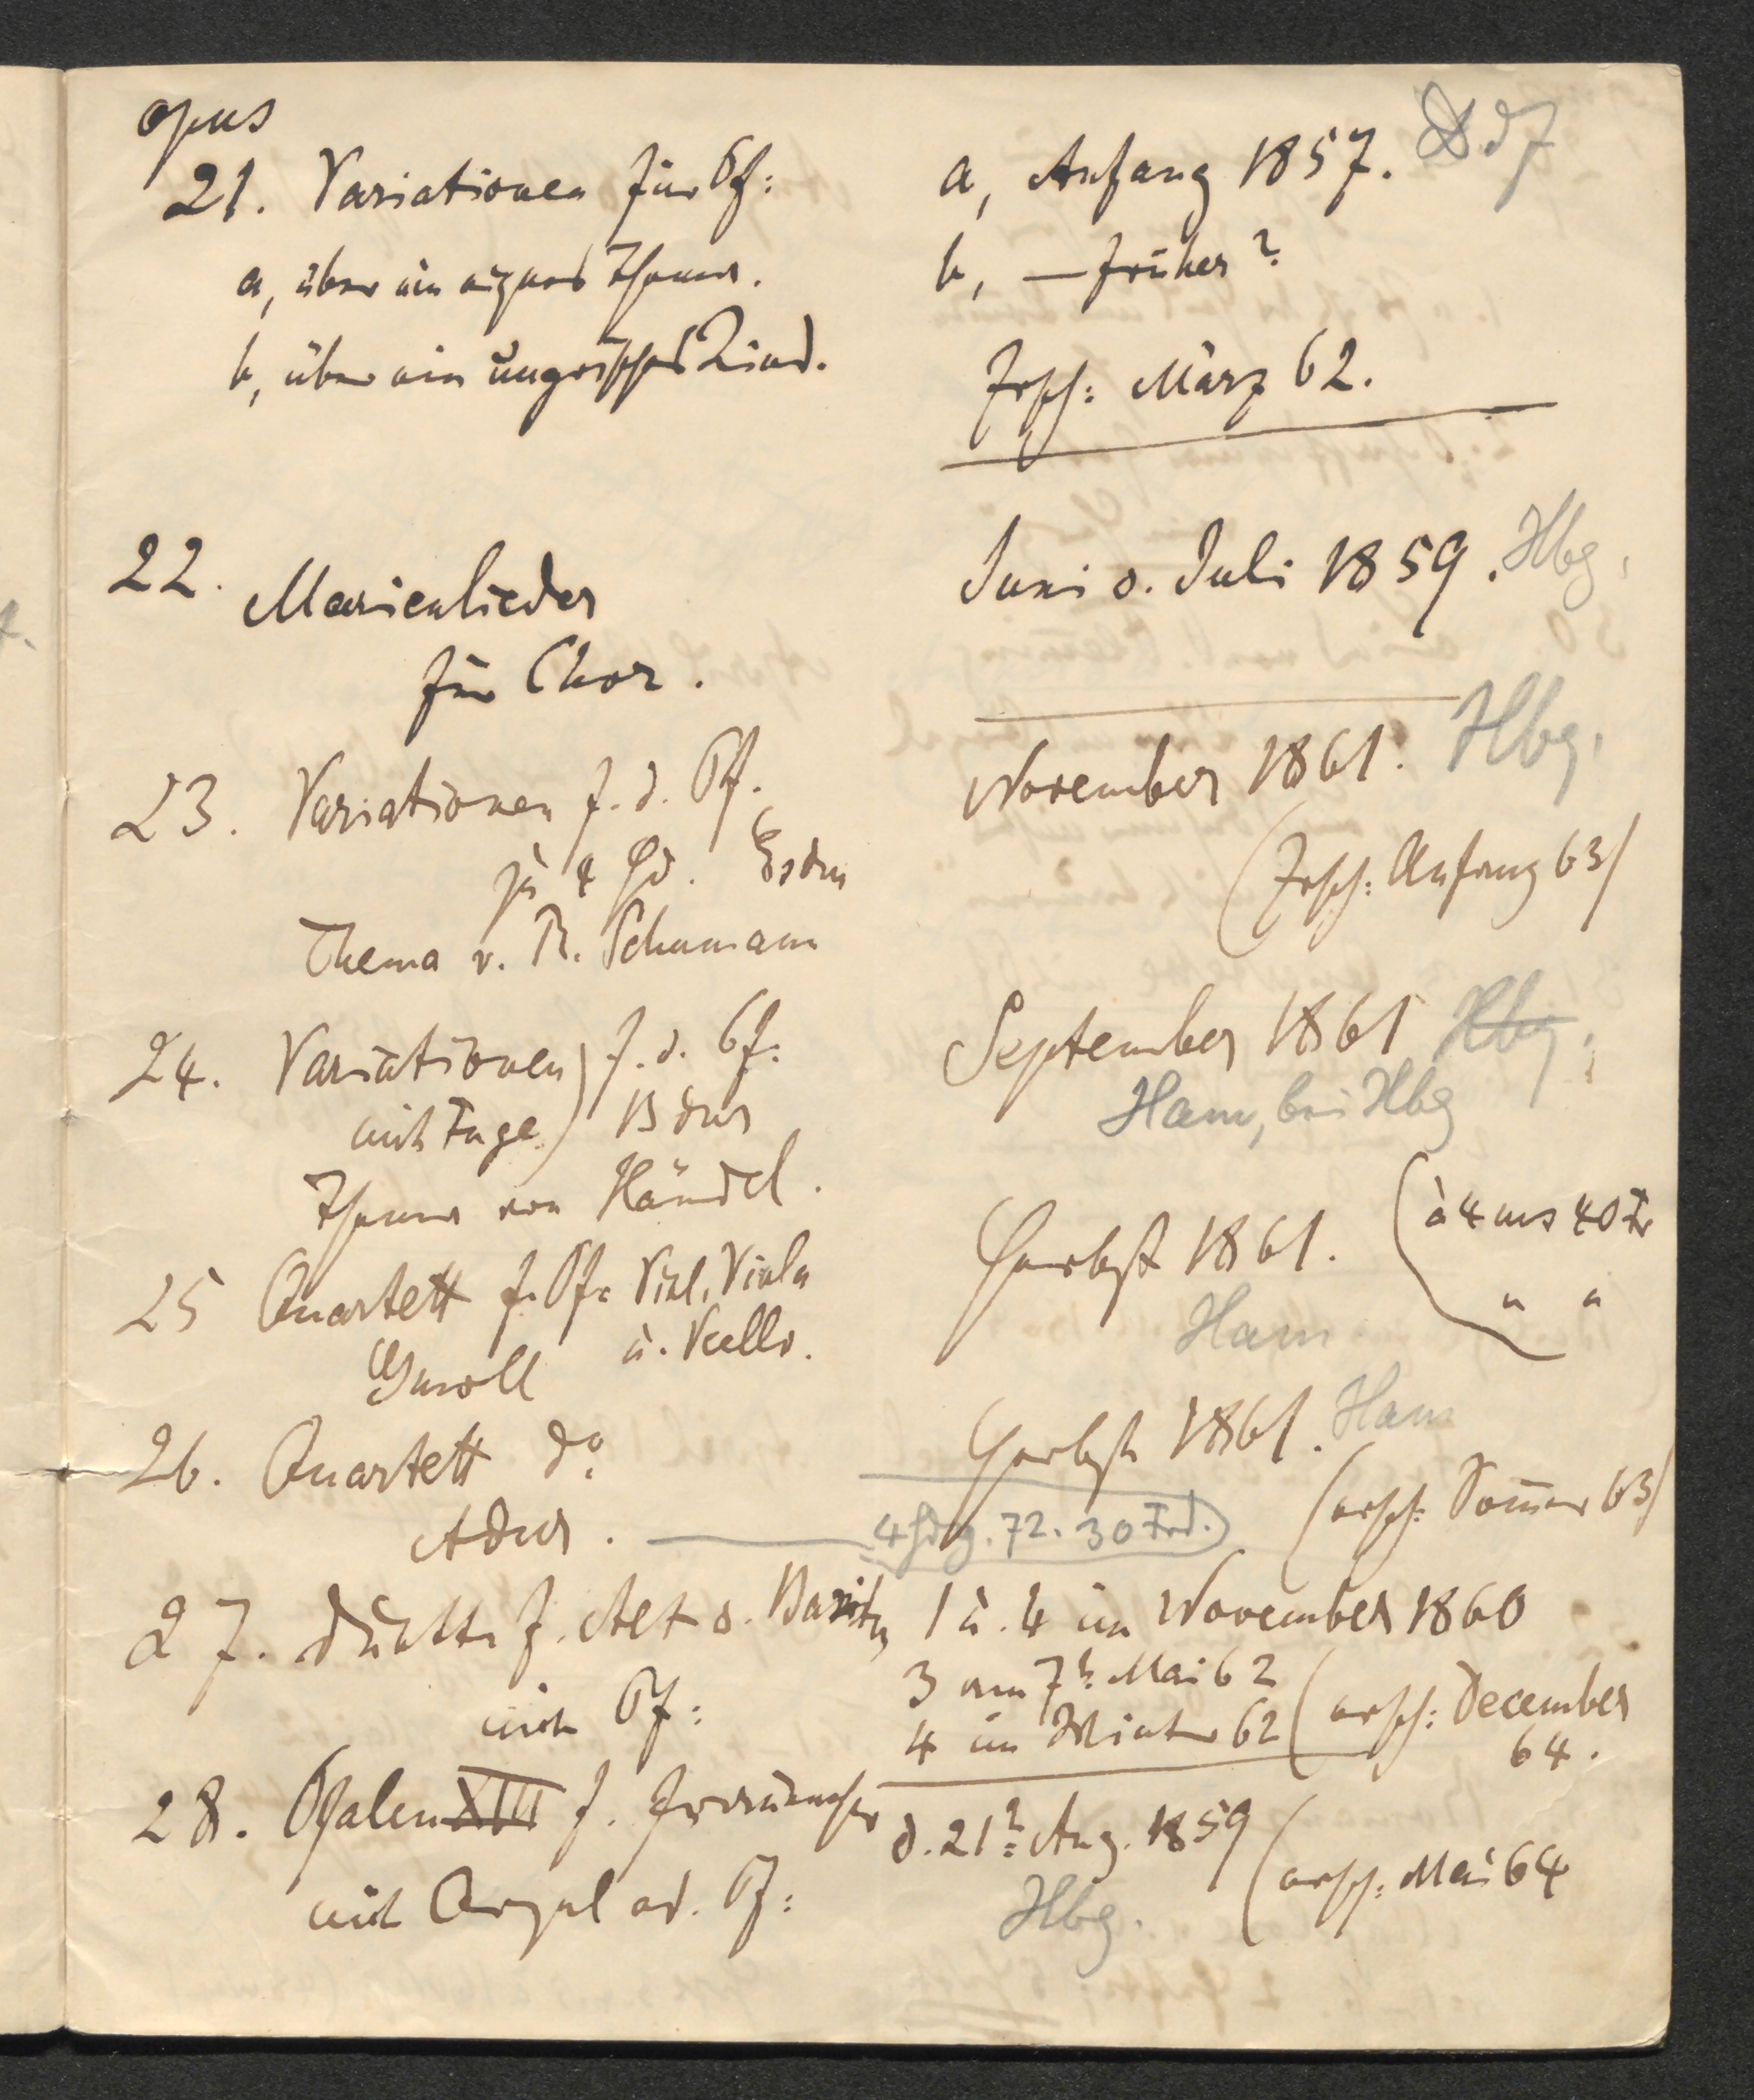 opus
21. Variationen für Pf: a, Anfang 1857. Ddf
a, über ein eignes Thema. b, — früher?
b, über ein ungrisches Lied. Ersch: März 62.
22. Marienlieder Juni o. Juli 1859. Hbg.
für Chor.
23. Variationen f. d. Pf. November 1861. Hbg.
zu 4 Hd. Esdur (Ersch: Anfang 63)
Thema v. R. Schumann
24. Variationen) f. d. Pf: September 1861 Hbg.
mit Fuge) Bdur Ham, bei Hbg
Thema von Händel.
25 Quartett f. Pf: Viol. Viola Herbst 1861. (à 4 ms 40 Fr
Gmoll u. Vcello. Ham " "
26. Quartett do Herbst 1861. Ham
Adur. — 4hdg. 72. 30 Frd. (ersch: Sommer 63)
27. Duette f. Alt o. Bariton 1 u. 4 im November 1860
mit Pf: 3 am 7t Mai 62
4 im Winter 62 (ersch: December
64.
28. Psalm XIII f. Frauenchor d. 21t Aug. 1859
mit Orgel od. Pf: Hbg. (ersch: Mai 64